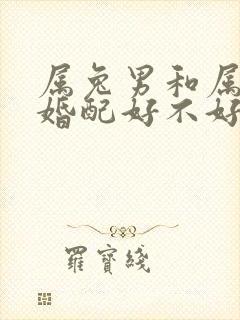 属兔男和属
婚配好不好
羅寶綫